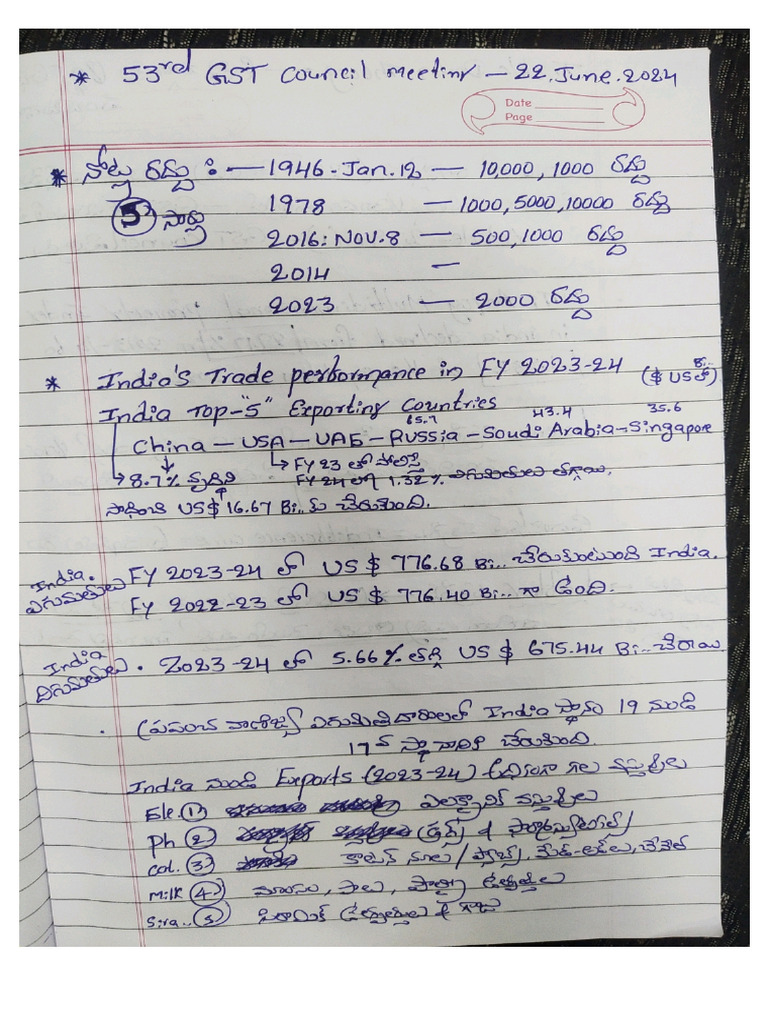 * 53rd GST Council meeting - 22.June.2024
Date
Page
* నోట్ల రద్దు :- 1946-Jan.12 - 10,000, 1000 రద్దు
5 సార్లు 1978 - 1000, 5000, 10000 రద్దు
2016: Nov.8 - 500, 1000 రద్దు
2014 -
2023 - 2000 రద్దు
* India's Trade performance in FY 2023-24 ($ US Bi.. లో)
India Top-"5" Exporting Countries
65.7 43.4 35.6
China - USA - UAE - Russia - Saudi Arabia - Singapore
8.7% వృద్ధిని FY 23 తో పోలిస్తే FY 24 లో 1.32% ఎగుమతులు తగ్గాయి.
సాధించి US$ 16.67 Bi.. కు చేరుకుంది.
India ఎగుమతులు FY 2023-24 లో US $ 776.68 Bi.. చేరుకుంటుంది India.
FY 2022-23 లో US $ 776.40 Bi.. గా ఉంది.
India దిగుమతులు . 2023-24 లో 5.66% తగ్గి US $ 675.44 Bi.. చేరాయి
. ప్రపంచ వాణిజ్య ఎగుమతిదారులలో India స్థానం 19 నుండి
17వ స్థానానికి చేరుకుంది.
India నుండి Exports (2023-24) అధికంగా గల వస్తువులు
Ele. 1) ఎలక్ట్రానిక్ వస్తువులు
Ph 2) డ్రగ్స్ & ఫార్మాస్యూటికల్స్
Cot. 3) కాటన్ నూలు / ఫ్యాబ్స్, మేడ్-అప్‌లు, చేనేత
Milk 4) మాంసం, పాలు, పౌల్ట్రీ ఉత్పత్తులు
Sira.. 5) సిరామిక్ ఉత్పత్తులు & గాజు